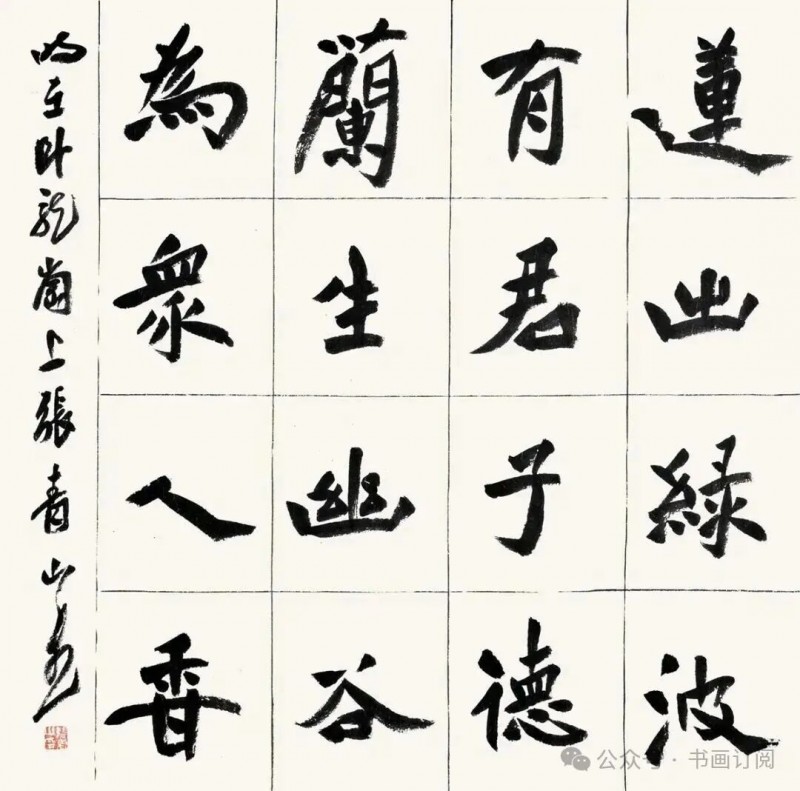 蓮出綠波
有君子德
蘭生幽谷
為眾人香
時在卧龍崗上張青山書
公众号·书画订阅